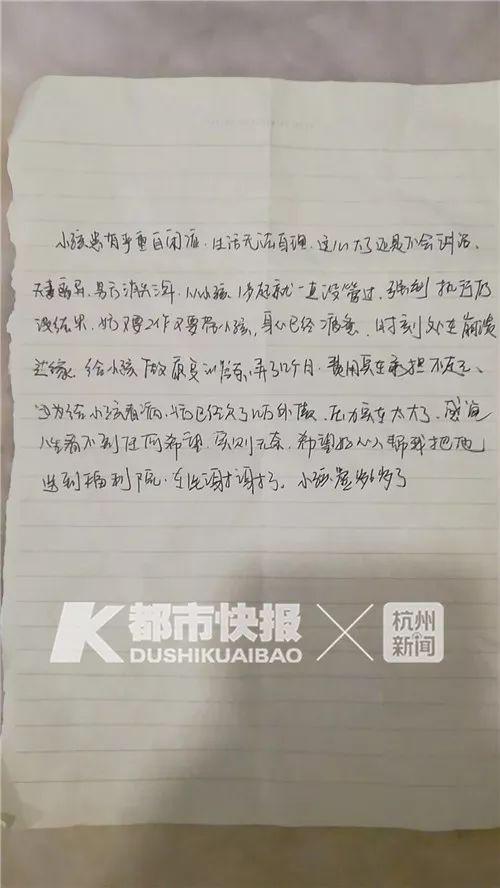 小孩患有严重自闭症.生活无法自理,这么大了还是不会讲话.
夫妻离异,男方消失3年,从小孩1岁起就一直没管过,强制执行仍
没结果,妈又要工作又要带小孩,身心已经疲惫.时刻处在崩溃
边缘.给小孩做康复训练,弄了几个月.费用实在承担不起了、
为给小孩看病,已经欠了10万外债.压力实在太大了.感觉
人生看不到任何希望,实则无奈.希望好心人帮我把他
送到福利院.在此谢谢了。小孩虚岁6岁了
都市快报
DUSHIKUAIBAO
杭州
新闻